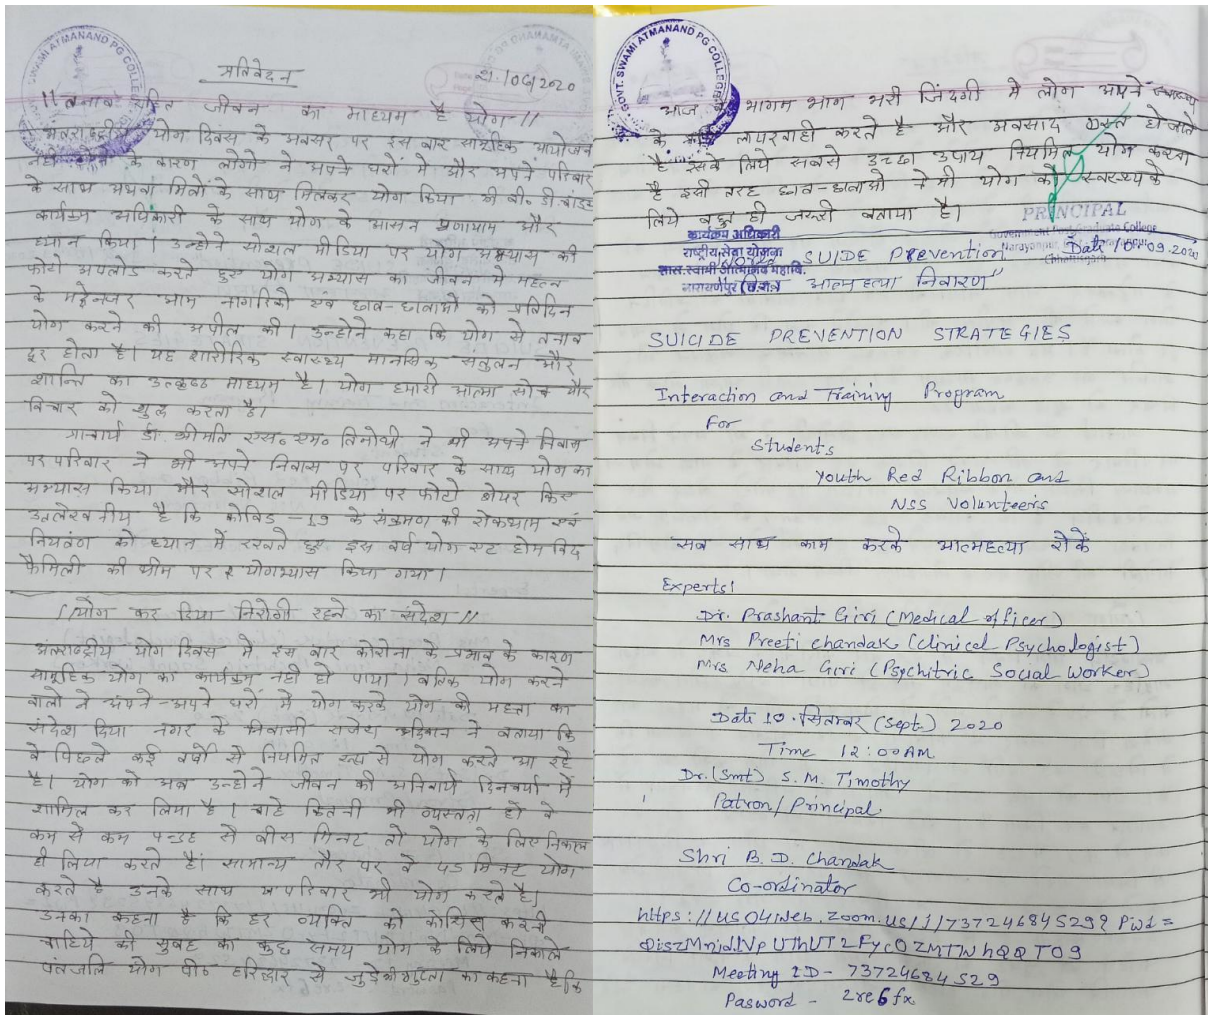 प्रतिवेदन
21/06/2020
।। तनाव रहित जीवन का माध्यम है योग ।।
अंतराष्ट्रीय योग दिवस के अवसर पर इस बार सामूहिक आयोजन
नही होने के कारण लोगो ने अपने घरों में और अपने परिवार
के साथ अथवा मित्रों के साथ मिलकर योग किया श्री बी. डी. चांडक
कार्यक्रम अधिकारी के साथ योग के आसन प्रणायाम और
ध्यान किया। उन्होने सोशल मीडिया पर योग अभ्यास की
फोटो अपलोड करते हुए योग अभ्यास का जीवन मे महत्व
के मद्देनजर आम नागरिको एवं छात्र-छात्राओ को प्रतिदिन
योग करने की अपील की। उन्होने कहा कि योग से तनाव
दूर होता है। यह शारीरिक स्वास्थ्य मानसिक संतुलन और
शान्ति का उत्कृष्ठ माध्यम है। योग हमारी आत्मा सोच और
विचार को शुद्ध करता है।
प्राचार्य डॉ. श्रीमति एस॰ एम॰ तिमोथी ने भी अपने निवास
पर परिवार ने भी अपने निवास पर परिवार के साथ योग का
अभ्यास किया और सोशल मीडिया पर फोटो शेयर किए
उल्लेखनीय है कि कोविड -19 के संक्रमण की रोकथाम एवं
नियंत्रण को ध्यान में रखते हुए इस वर्ष योग एट होम विद
फैमिली की थीम पर योगभ्यास किया गया।
।।योग कर दिया निरोगी रहने का संदेश ।।
अंतराष्ट्रीय योग दिवस में इस बार कोरोना के प्रभाव के कारण
सामूहिक योग का कार्यक्रम नही हो पाया। बल्कि योग करने
वालो ने अपने-अपने घरों में योग करके योग की महत्ता का
संदेश दिया नगर के निवासी राजेश ने बताया कि
वे पिछले कई वर्षों से नियमित रूप से योग करते आ रहे
है। योग को अब उन्होने जीवन की अनिवार्य दिनचर्या में
शामिल कर लिया है। चाहे कितनी भी व्यस्तता हो वे
कम से कम पन्द्रह से बीस मिनट तो योग के लिए निकाल
ही लिया करते है। सामान्य तौर पर वे 45 मिनट योग
करते है उनके साथ परिवार भी योग करते है।
उनका कहना है कि हर व्यक्ति को कोशिस करनी
चाहिये की सुबह का कुछ समय योग के लिये निकाले
पंतजलि योग पी० हरिद्वार से जुडे श्री गुप्ता का कहना है कि
GOVT. SWAMI ATMANAND PG COLLEGE
आज के भागम भाग भरी जिंदगी मे लोग अपने स्वास्थ्य
के प्रति लापरवाही करते है और अवसाद ग्रस्त हो जाते
है इसके लिये सबसे उच्छा उपाय नियमित योग करना
है इसी तरह छात्र-छात्राओ ने भी योग को स्वास्थ्य के
लिये बहुत ही जरूरी बताया है।
PRINCIPAL
Government Post Graduate College
Narayanpur,
Chhattisgarh
कार्यक्रम अधिकारी
राष्ट्रीय सेवा योजना
शास. स्वामी आत्मानंद महावि.
नारायणपुर (छ.ग.)
Date 10.09.2020
SUIDE Prevention
"आत्महत्या निवारण"
SUICIDE PREVENTION STRATEGIES
Interaction and Training Program
For
Students
Youth Red Ribbon and
NSS Volunteers
सब साथ काम करके आत्महत्या रोकें
Experts!
Dr. Prashant Giri (Medical officer)
Mrs Preeti chandak (Clinical Psychologist)
Mrs Neha Giri (Psychitric Social Worker)
Date 10. सितम्बर (Sept.) 2020
Time 12:00AM
Dr. (Smt) S. M. Timothy
Patron/Principal
Shri B. D. Chandak
Co-ordinator
https://us04web.zoom.us/j/73724684529? Pwd=
Meeting ID- 73724684529
Pasword - 2re6fx